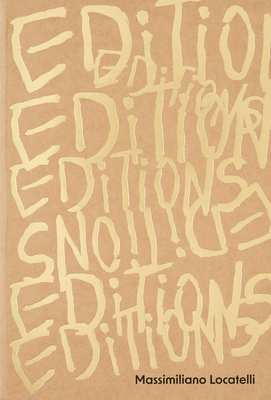 EDITIO
EDITIONS
EDITIONS
EDITIONS
EDITIONS
EDITIONS
EDITIONS
Massimiliano Locatelli